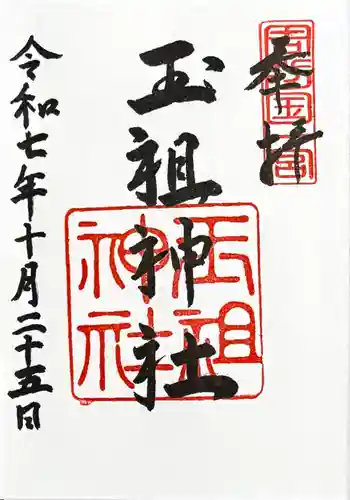 奉拝
玉祖神社
令和七年十月二十五日
玉祖
神社